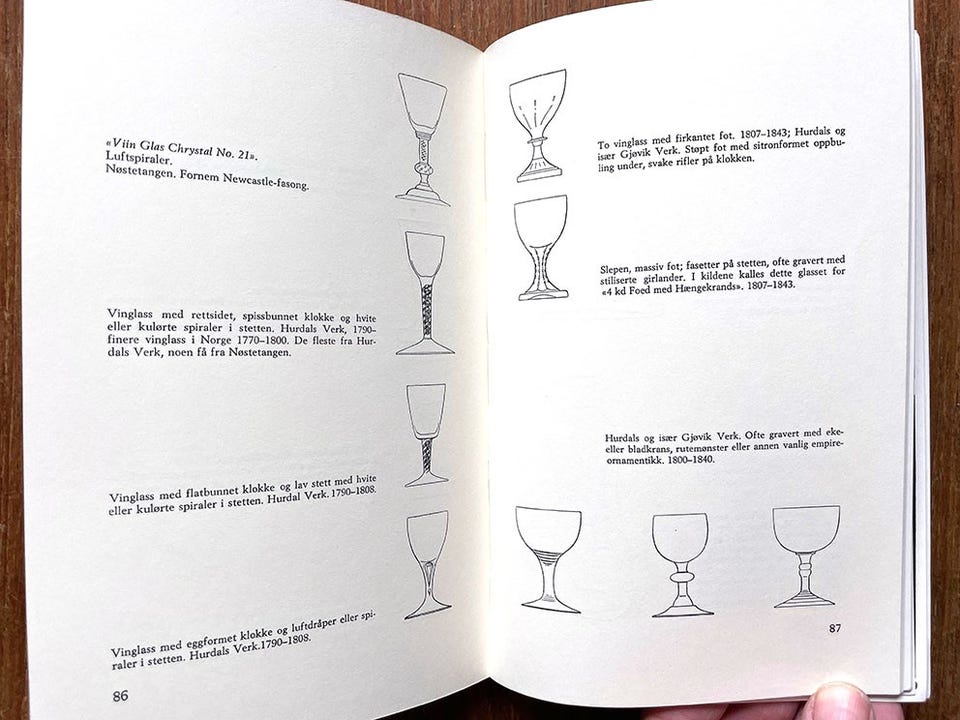 «Viin Glas Chrystal No. 21».
Luftspiraler.
Nøstetangen. Fornem Newcastle-fasong.
Vinglass med rettsidet, spissbunnet klokke og hvite
eller kulørte spiraler i stetten. Hurdals Verk, 1790–
finere vinglass i Norge 1770–1800. De fleste fra Hur-
dals Verk, noen få fra Nøstetangen.
Vinglass med flatbunnet klokke og lav stett med hvite
eller kulørte spiraler i stetten. Hurdal Verk. 1790–1808.
Vinglass med eggformet klokke og luftdråper eller spi-
raler i stetten. Hurdals Verk.1790–1808.
86
To vinglass med firkantet fot. 1807–1843; Hurdals og
især Gjøvik Verk. Støpt fot med sitronformet oppbu-
ling under, svake rifler på klokken.
Slepen, massiv fot; fasetter på stetten, ofte gravert med
stiliserte girlander. I kildene kalles dette glasset for
«4 kd Foed med Hængekrands». 1807–1843.
Hurdals og især Gjøvik Verk. Ofte gravert med eke-
eller bladkrans, rutemønster eller annen vanlig empire-
ornamentikk. 1800–1840.
87